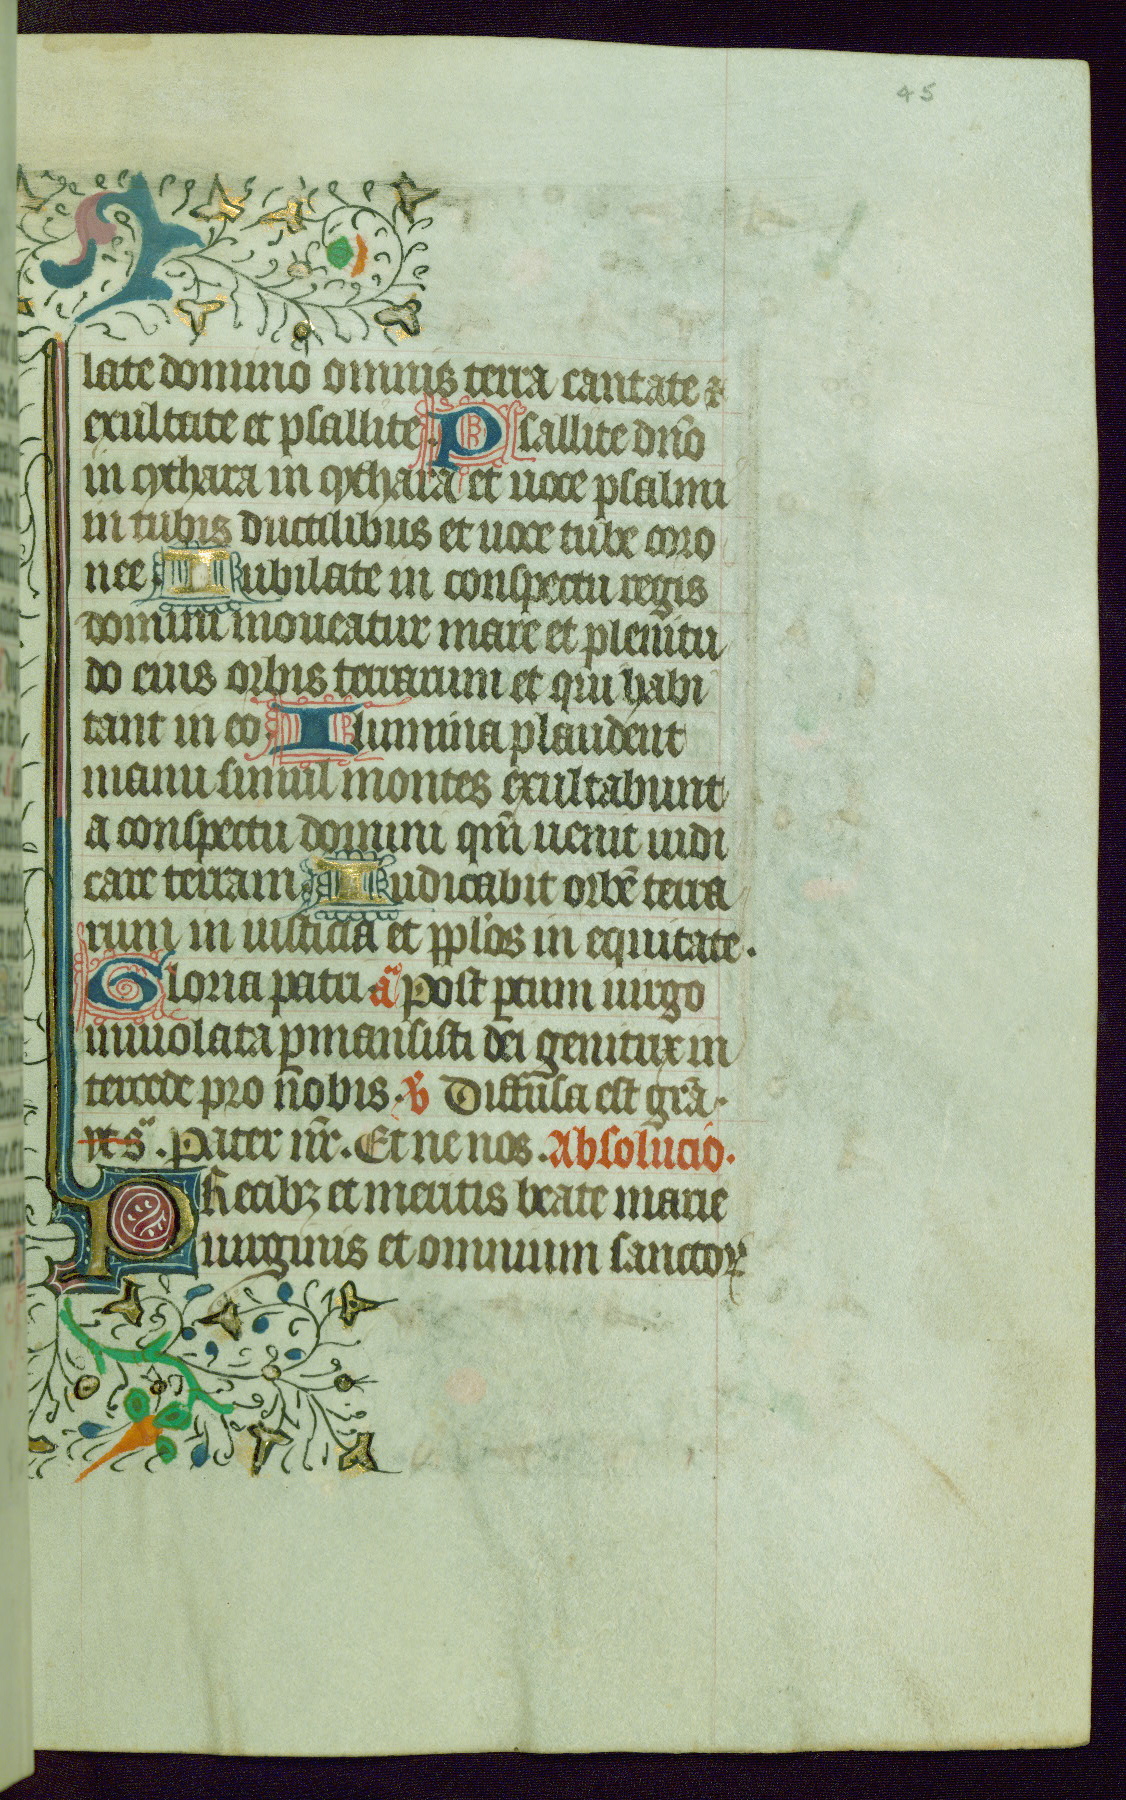 45
late domino omnis terra cantate ⁊
exultate et psallite. Psallite dn̄o
in cythara in cythara et uoce psalmi
in tubis ductilibus et uoce tube coro
nee Iubilate in conspectu regis
domini moueatur mare et plenitu
do eius orbis terrarum et qui habi
tant in eo. Flumina plaudent
manu simul montes exultabunt
a conspectu domini qm̄ uenit iudi
care terram Iudicabit orbē terra
rum in iusticia et pplōs in equitate.
Gloria patri a͞ Post ptum uirgo
inuiolata pmansisti dei genitrix in
tercede pro nobis. ℣ Diffusa est gr̄a.
Pater nr̄. Et ne nos. Absolucio.
PRecibꝫ et meritis beate marie
uirginis et omnium sanctoꝝ